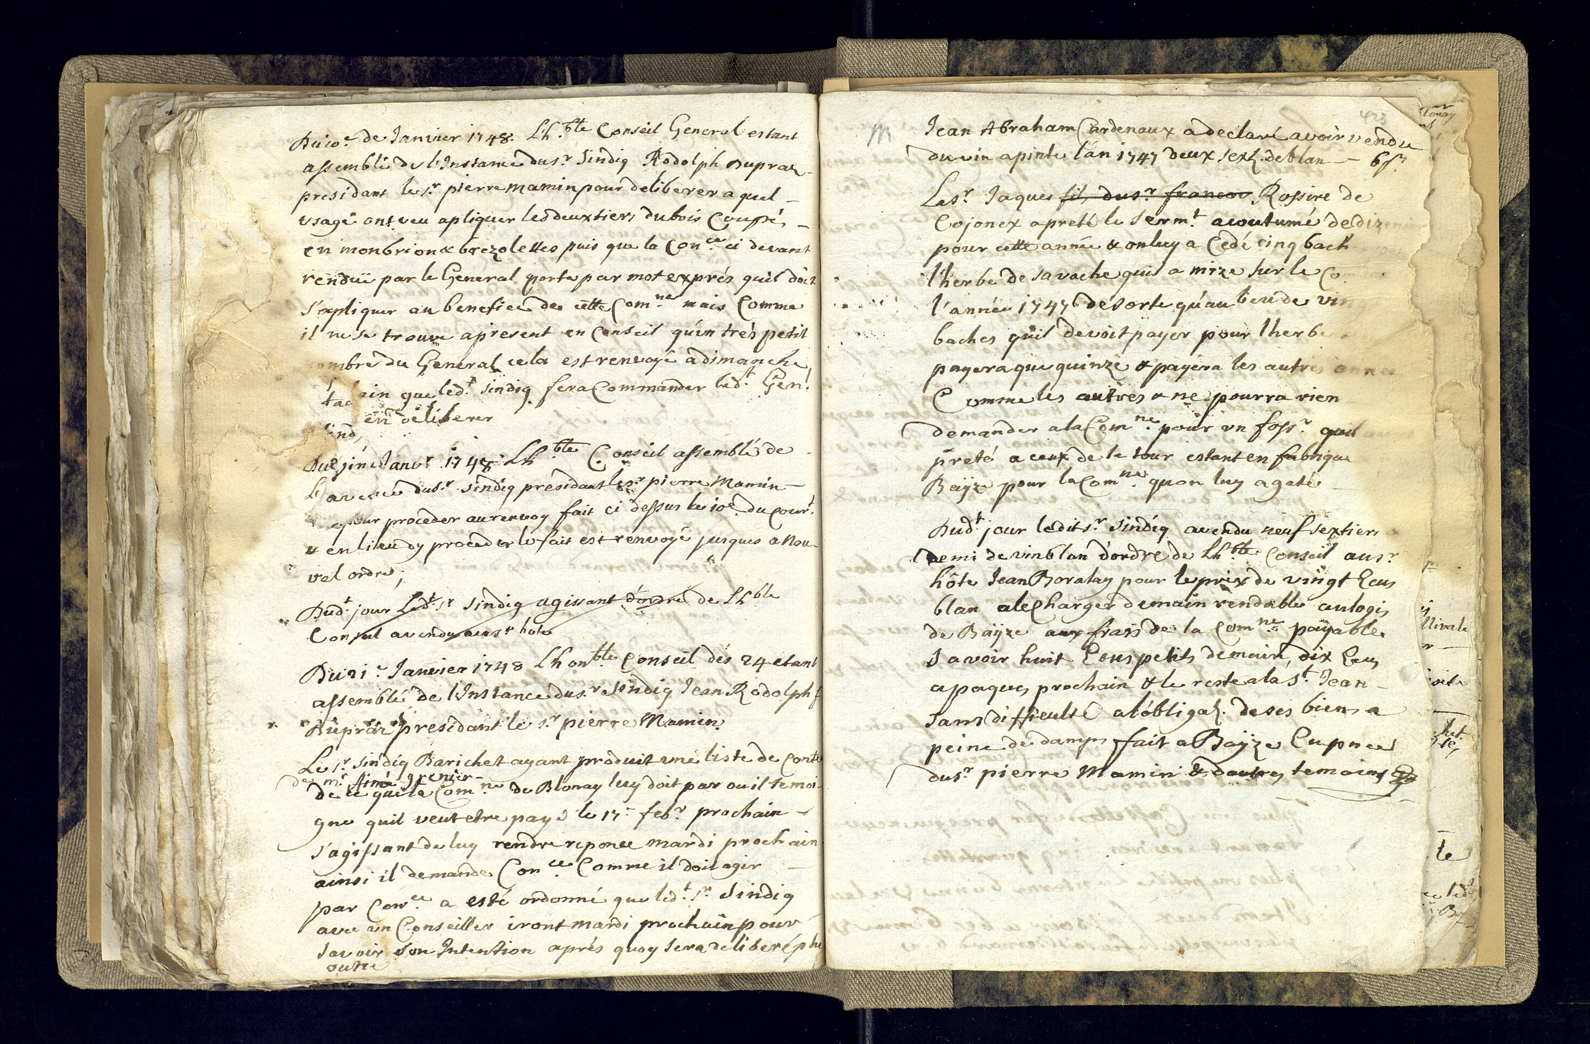 Du 10.e de Janvier 1748. Lh.ble Conseil General estant
assemblé de l'Instance du sr. Sindiq Rodolph Dupraz
presidant le sr. pierre mamin pour deliberer a quel
usage ont veu apliquer les deux tiers du bois Coupés
en monbrion & brezolettes puis que la Con.ce ci devant
rendüe par le General porte par mot exprés quil doit
s'expliquer au benefice de cette Com.ne mais Comme
il ne se trouve apresent en Conseil qu'en trés petit
ombre du General cela est renvoyé a dimanche
ain que led.t sindiq fera Commander led.t Gen.l
en deliberer
Janvr. 1748 Lh.ble Conseil assemblé de
du sr. sindiq presidant le sr. pierre Mamin
pour proceder au renvoy fait ci dessus le 10e. du Cour.t
& en lieu dy proceder le fait est renvoyé jusques a nou-
vel ordre;
Dud.t jour Led.t sr. sindiq agissant d'ordre de Lh.ble
Conseil a vendu au sr. hote
Du 21.e Janvier 1748 Lhon.ble Conseil dés 24 etant
assemblé de l'Instance du sr. Sindiq Jean Rodolph
Dupraz presidant le sr. pierre Mamin
Le sr. sindiq Barichet ayant produit une liste de Conte
de mr. Aimé grenier
de ce que la Com.ne de Blonay luy doit par ou il temoi-
gne quil veut etre payé le 17.e feb.r prochain
s'agissant de luy rendre reponce mardi prochain
ainsi il demande Con.ce Comme il doit agir
par Con.ce a esté ordonné que led.t sr. Sindiq
avec un Conseiller iront mardi prochain pour
savoir son Intention aprés quoy sera deliberé plu
outre
423
M
Jean Abraham Cardenaux a declaré avoir vendu
du vin a pinte l'an 1747 deux sext. de blan
Le sr. Jaques fil du sr. francois Rossire de
Cojonex a preté le serm.t acoutumé de
pour cette année & on luy a Cedé cinq bach
lherbe de sa vache quil a mize sur le Co
l'année 1747 de sorte qu'au lieu de vin
baches quil devoit payer pour lherb
payera que quinze & payera les autres anne
Comme les autres & ne pourra rien
demander a la Com.ne pour un foss.r quil
preté a ceux de le tour estant en fabrique
Bayze pour la Com.ne quon luy a gaté
Dud.t jour ledit sr. Sindiq a vendu neuf sextiers
demi de vin blan d'ordre de Lh.ble Conseil au sr.
hôte Jean Boralay pour le prix de vingt Ecus
blan a le Charger demain rendable au logis
de Bayze aux frais de la Com.ne payable
savoir huit Ecus petits demain, dix Ecus
a paques prochain & le reste a la St. Jean
sans difficulté a l'obliga.n de ses biens a
peine de damps fait a Bayze En pnce
du sr. pierre Mamin & dautres temoins